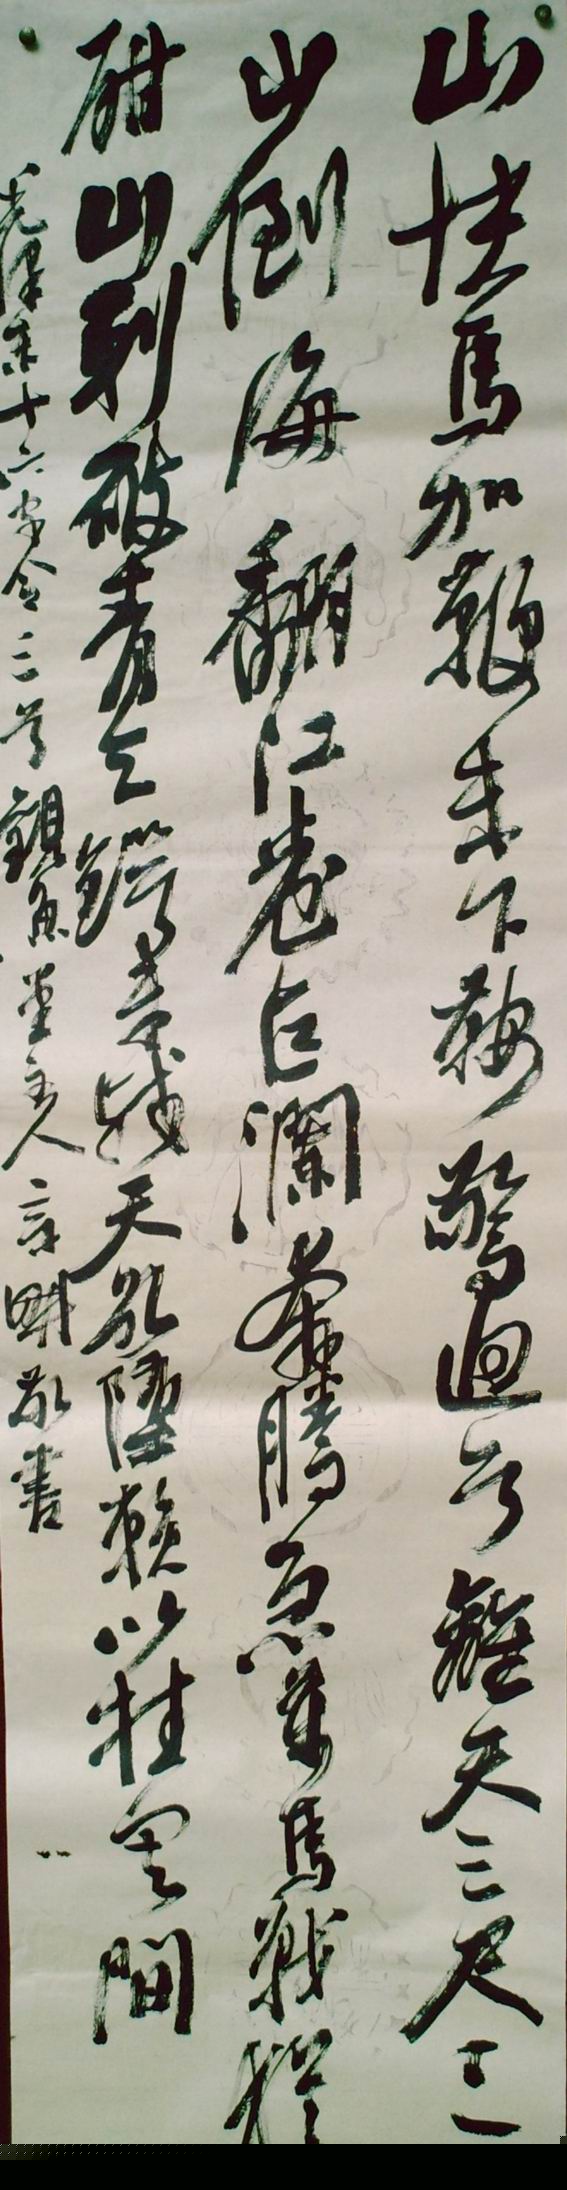 山快馬加鞭未下鞍驚迴首離天三尺三
山倒海翻江卷巨瀾奔騰急萬馬戰猶
酣山刺破青天鍔未殘天欲墮賴以柱其間
毛澤東十六字令三首 觀魚堂主人 敬書